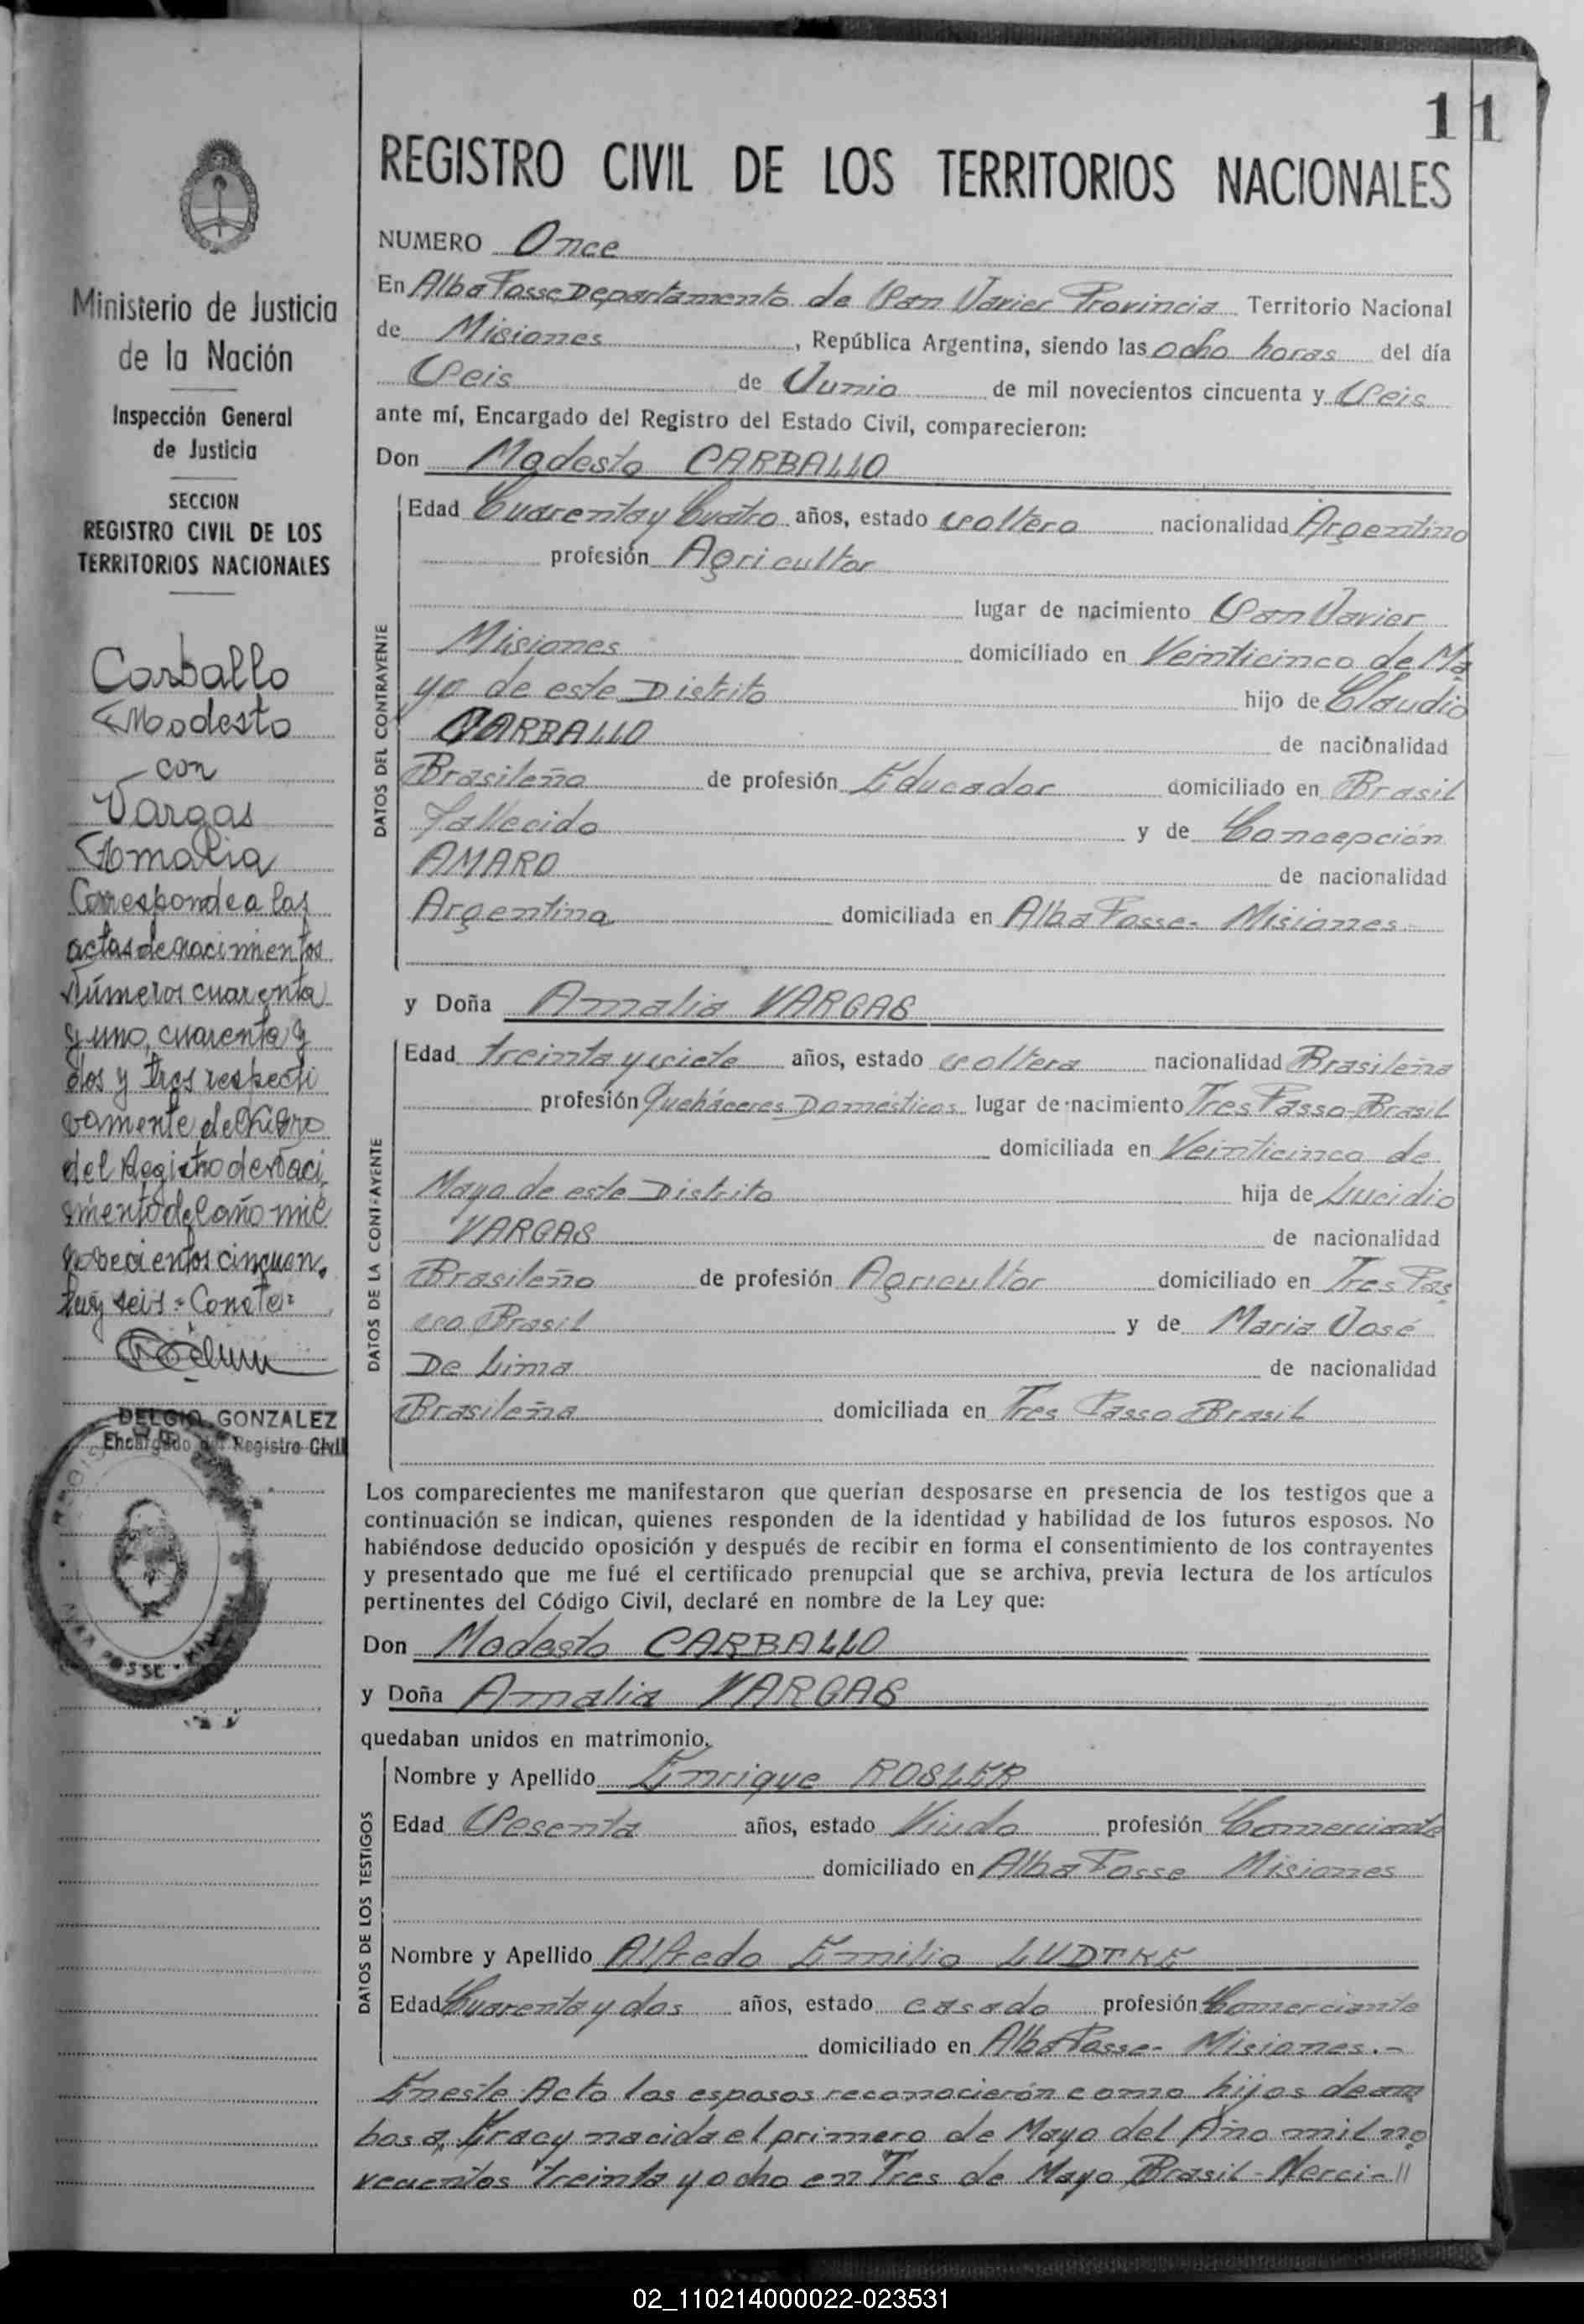 11
REGISTRO CIVIL DE LOS TERRITORIOS NACIONALES
Ministerio de Justicia
de la Nación
Inspección General
de Justicia
SECCION
REGISTRO CIVIL DE LOS
TERRITORIOS NACIONALES
Carballo
Modesto
con
Vargas
Amalia
Corresponde a las
actas de nacimientos
Números cuarenta
y uno, cuarenta y
dos y tres respecti
vamente del Libro
del Registro de Naci
miento del año mil
novecientos cincuen.
ta y seis = Conste =
DELGIO GONZALEZ
Encargado del Registro Civil
NUMERO Once
En Alba Posse Departamento de San Javier Provincia Territorio Nacional
de Misiones, República Argentina, siendo las ocho horas del día
Seis de Junio de mil novecientos cincuenta y Seis
ante mí, Encargado del Registro del Estado Civil, comparecieron:
Don Modesto CARBALLO
DATOS DEL CONTRAYENTE
Edad Cuarenta y Cuatro años, estado soltero nacionalidad Argentino
profesión Agricultor
lugar de nacimiento San Javier
Misiones domiciliado en Veinticinco de Ma
yo de este Distrito hijo de Claudio
CARBALLO de nacionalidad
Brasileño de profesión Educador domiciliado en Brasil
fallecido y de Concepción
AMARO de nacionalidad
Argentina domiciliada en Alba Posse- Misiones.
y Doña Amalia VARGAS
DATOS DE LA CONTRAYENTE
Edad treinta y siete años, estado soltera nacionalidad Brasileña
profesión Quehaceres Domésticos lugar de nacimiento Tres Passo-Brasil
domiciliada en Veinticinco de
Mayo de este Distrito hija de Lucidio
VARGAS de nacionalidad
Brasileño de profesión Agricultor domiciliado en Tres Pas
so Brasil y de Maria José
De Lima de nacionalidad
Brasileña domiciliada en Tres Passo Brasil
Los comparecientes me manifestaron que querían desposarse en presencia de los testigos que a
continuación se indican, quienes responden de la identidad y habilidad de los futuros esposos. No
habiéndose deducido oposición y después de recibir en forma el consentimiento de los contrayentes
y presentado que me fué el certificado prenupcial que se archiva, previa lectura de los artículos
pertinentes del Código Civil, declaré en nombre de la Ley que:
Don Modesto CARBALLO
y Doña Amalia VARGAS
quedaban unidos en matrimonio.
DATOS DE LOS TESTIGOS
Nombre y Apellido Enrique ROSLER
Edad Sesenta años, estado Viudo profesión Comerciante
domiciliado en Alba Posse Misiones
Nombre y Apellido Alfredo Emilio LUDTKE
Edad Cuarenta y dos años, estado casado profesión Comerciante
domiciliado en Alba Posse- Misiones.-
En este Acto los esposos reconocierón como hijos de am
bos a, Iracy nacida el primero de Mayo del Año mil no
vecientos treinta y ocho en Tres de Mayo Brasil - Nerci-//
02_110214000022-023531